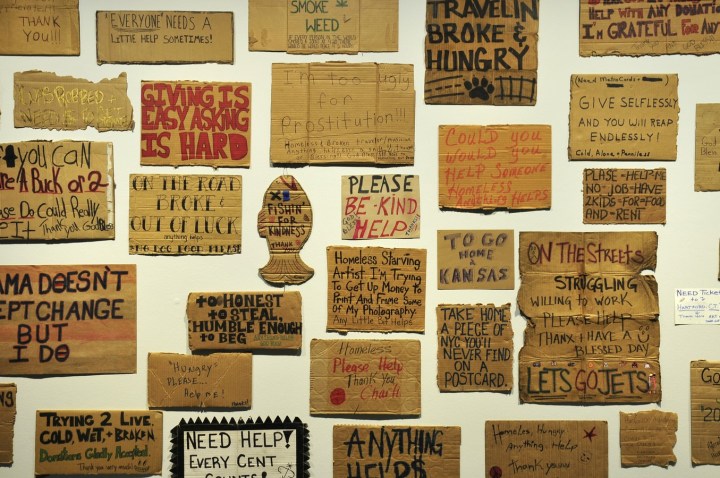 THANK
YOU!!!
"EVERYONE" NEEDS A
LITTLE HELP SOMETIMES!
SMOKE
WEED
TRAVELIN
BROKE &
HUNGRY
HELP WITH ANY DONATIO
I'M GRATEFUL FOR ANY
GIVING IS
EASY ASKING
IS HARD
I'm too ugly
for
Prostitution!!!
(Need MetroCards +
GIVE SELFLESSLY
AND YOU WILL REAP
ENDLESSLY!
Cold, Alone + Penniless
YOU CAN
A BUCK or 2
Do Could Really
it Thank you God
ON THE ROAD
BROKE &
OUT OF LUCK
anything helps
DOG FOOD PLEASE
FISHIN'
FOR
KINDNESS
THANK
PLEASE
BE-KIND
HELP
COULD YOU
WOULD YOU
HELP SOMEONE
HOMELESS
ANYTHING HELPS
PLASE-HELP-ME
NO-JOB-HAVE
2KIDS-FOR-FOOD
AND-RENT
AMA DOESN'T
EPT CHANGE
BUT
I DO
to HONEST
to STEAL,
HUMBLE ENOUGH
to BEG
Homeless Starving
Artist I'm Trying
To Get Up Money to
Print And Frame Some
of My Photography.
Any Little Bit Helps
TO GO
HOME
KANSAS
ON THE STREETS
STRUGGLING
WILLING TO WORK
PLEASE HELP
THANX HAVE A
BLESSED DAY
LETS GO JETS!
NEED
TAKE HOME
A PIECE OF
NYC YOU'LL
NEVER FIND
ON A
POSTCARD.
"HUNGRY"
PLEASE...
HELP ME!
Homeless
Please Help
Thank You
TRYING 2 LIVE.
COLD, WET, + BROKEN
Donations Gladly Accepted.
Thank you very much
NEED HELP!
EVERY CENT
COUNTS!
ANYTHING
HELP$
Homeless, Hungry
Anything Help
Thank you